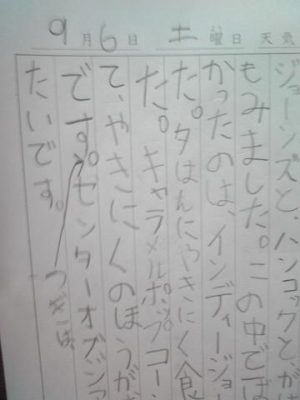 9月6日 土曜日 天気
ジョーンズと、ハンコックと、が
もみました。この中でぼ
かったのは、インディージョー
た。夕はんにやきにく食
た。キャラメルポップコーン
て、やきにくのほうが
です。センターオブジア
つぎは、
たいです。